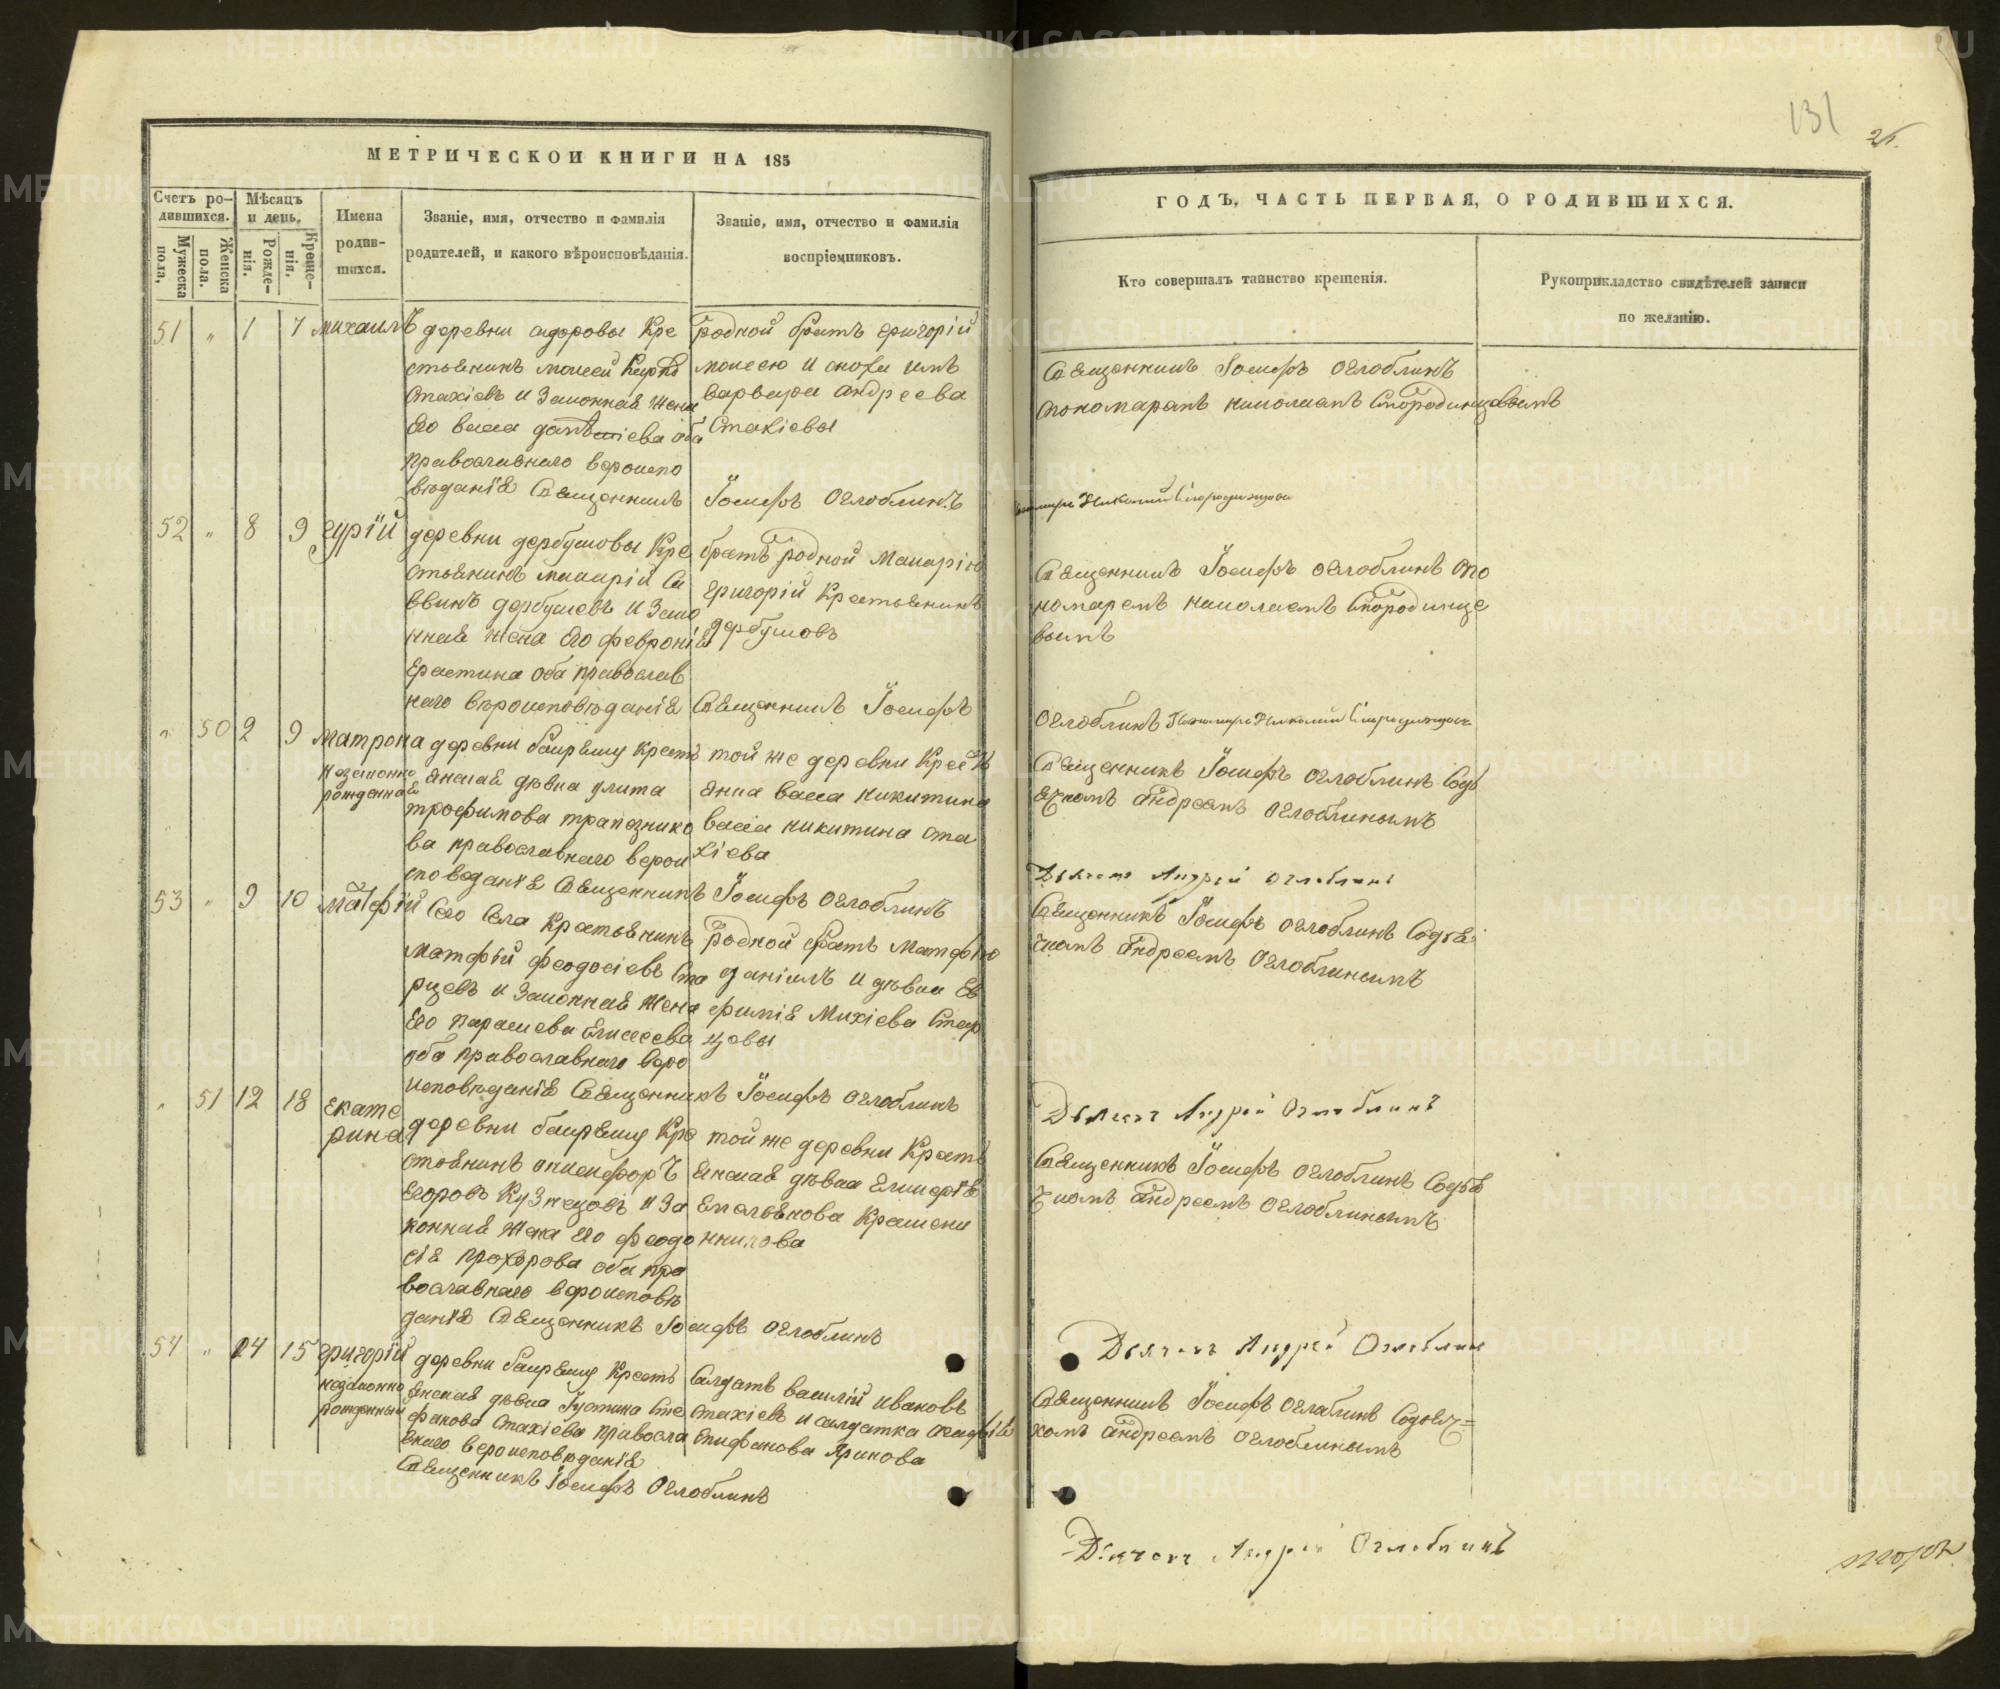 131
МЕТРИЧЕСКОЙ КНИГИ НА 185
ГОДЪ, ЧАСТЬ ПЕРВАЯ, О РОДИВШИХСЯ.
Счетъ ро-
дившихся.
Мужеска пола,
Женска пола.
Мѣсяцъ
и день.
Рожде-
нія.
Креще-
нія.
Имена
родив-
шихся.
Званіе, имя, отчество и фамилія
родителей, и какого вѣроисповѣданія.
Званіе, имя, отчество и фамилія
воспріемниковъ.
Кто совершалъ таинство крещенія.
Рукоприкладство свидѣтелей записи
по желанію.
51 „ 1 7 Михаилъ
деревни Сидоровы Кре
стьянинъ Моисей
Стахіевъ и Законная жена
Его Васса оба
православнаго вероиспо
вѣданія Священникъ
родной братъ Григорій
Моисею и снохи имъ
варвара Андреева
Стахіевы
Іосифъ Оглоблинъ
Священникъ Іосифъ Оглоблинъ
пономаремъ николаемъ Смородинцовымъ
Николай Смородинцовъ
52 „ 8 9 Гурій
деревни дербушовы Кре
стьянинъ Макарій Са
ввинъ дербушевъ и Зако
нная жена Его Февронія
Ерастина оба православ
наго вѣроисповѣданія Священникъ Іосифъ
братъ родной Макарію
Григорій Крестьянинъ
дербушовъ
Священникъ Іосифъ Оглоблинъ поно
номаремъ николаемъ Смородинце
вымъ
Оглоблинъ Пономарь Николай Смородинцовъ
„ 50 2 9 Матрона
незаконно
рожденная
деревни Бакряшу Кресть
янская дѣвка улита
трофимова трапезнико
ва православнаго верои
споведанія Священникъ Іосифъ Оглоблинъ
той же деревни Кресть
янка васса никитина
васса никитина ста
хіева
Священникъ Іосифъ Оглоблинъ Содь
ячкомъ Андреемъ Оглоблинымъ
Дьячекъ Андрей Оглоблинъ
53 „ 9 10 Матфій
Сего Села Крестьянинъ
Матфѣй феодосіевъ Ста
рцевъ и Законная жена
Его Параскева Елисеева
оба православнаго веро
исповѣданія Священникъ Іосифъ Оглоблинъ
родной братъ Матфѣю
даніилъ и дѣвка Ев
фимія Михіева Стар
цовы
Священникъ Іосифъ Оглоблинъ Содья
чкомъ Андреемъ Оглоблинымъ
Дьячекъ Андрей Оглоблинъ
„ 51 12 18 Екате
рина
деревни Бакряшу Кре
стьянинъ онисифоръ
Егоровъ Кузнецовъ и За
конная жена его феодо
сія прохорова оба пра
вославнаго вероисповѣ
данія Священникъ Іосифъ Оглоблинъ
той же деревни Кресть
янская дѣвка Еликерія
Емельянова Крашени
нникова
Священникъ Іосифъ Оглоблинъ Содья
чкомъ Андреемъ Оглоблинымъ
Дьячекъ Андрей Оглоблинъ
54 „ 14 15 Григорій
незаконно
рожденный
деревни Бакряшу Кресть
янская дѣвка Іустина Сте
фанова Стахіева правосла
внаго вероисповѣданія
Священникъ Іосифъ Оглоблинъ
Салдатъ василій ивановъ
стахіевъ и салдатка агафія
Епифанова Яринова
Священникъ Іосифъ Оглоблинъ Содьяч=
комъ Андреемъ Оглоблинымъ
Дьячекъ Андрей Оглоблинъ
METRIKI.GASO-URAL.RU